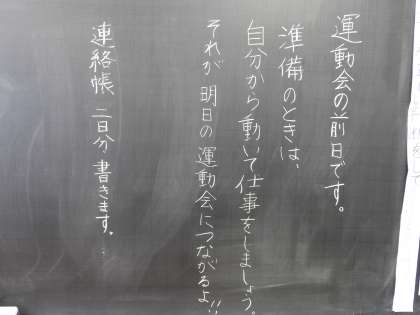 運動会の前日です。
準備のときは、
自分から動いて仕事をしましょう。
それが明日の運動会につながるよ!!
連絡帳 二日分 書きます。…